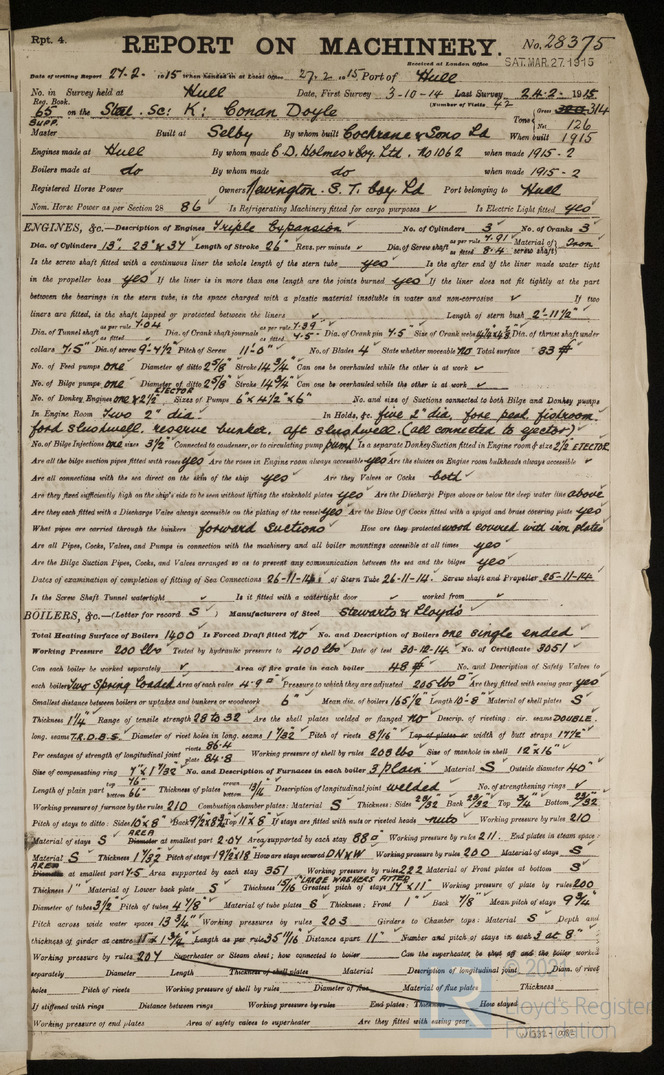 Rpt. 4.
REPORT ON MACHINERY.
No. 28375
Received at London Office SAT. MAR. 27. 1915
Date of writing Report 27.2. 1915 When handed in at Local Office 27.2. 1915 Port of Hull
No. in Survey held at Hull Date, First Survey 3-10-14 Last Survey 24.2. 1915
Reg. Book. (Number of Visits 42
65 on the Steel Sc: K: Conan Doyle Gross 314
SUPP. Tons Net 126
Master Built at Selby By whom built Cochrane & Sons Ld When built 1915
Engines made at Hull By whom made C. D. Holmes & Coy. Ltd. No 1062 when made 1915-2
Boilers made at do By whom made do when made 1915-2
Registered Horse Power Owners Newington S. T. Coy Ld Port belonging to Hull
Nom. Horse Power as per Section 28 86 Is Refrigerating Machinery fitted for cargo purposes ✓ Is Electric Light fitted yes
ENGINES, &c.—Description of Engines Triple Expansion No. of Cylinders 3 No. of Cranks 3
Dia. of Cylinders 13" 23" & 37 Length of Stroke 26" Revs. per minute ✓ Dia. of Screw shaft as per rule 7.91 as fitted 8.4 Material of screw shaft Iron
Is the screw shaft fitted with a continuous liner the whole length of the stern tube yes Is the after end of the liner made water tight
in the propeller boss yes If the liner is in more than one length are the joints burned yes If the liner does not fit tightly at the part
between the bearings in the stern tube, is the space charged with a plastic material insoluble in water and non-corrosive ✓ If two
liners are fitted, is the shaft lapped or protected between the liners ✓ Length of stern bush 2'-11½"
Dia. of Tunnel shaft as per rule 7.04 as fitted Dia. of Crank shaft journals as per rule 7.39 as fitted 7.5 Dia. of Crank pin 7.5 Size of Crank webs Dia. of thrust shaft under
collars 7.5" Dia. of screw 9'-7½" Pitch of Screw 11'-0" No. of Blades 4 State whether moveable no Total surface 33
No. of Feed pumps one Diameter of ditto 2⅝ Stroke 14¾" Can one be overhauled while the other is at work ✓
No. of Bilge pumps one Diameter of ditto 2⅝ Stroke 14¾" Can one be overhauled while the other is at work
No. of Donkey Engines one & 2½ EJECTOR Sizes of Pumps 6" x 4½" x 6" No. and size of Suctions connected to both Bilge and Donkey pumps
In Engine Room Two 2" dia. In Holds, &c. five 2" dia, fore peak, fishroom,
ford slushwell, reserve bunker, aft slushwell. (all connected to ejector)
No. of Bilge Injections one sizes 3½" Connected to condenser, or to circulating pump pump Is a separate Donkey Suction fitted in Engine room & size 2½ EJECTOR
Are all the bilge suction pipes fitted with roses yes Are the roses in Engine room always accessible yes Are the sluices on Engine room bulkheads always accessible ✓
Are all connections with the sea direct on the skin of the ship yes Are they Valves or Cocks both
Are they fixed sufficiently high on the ship's side to be seen without lifting the stokehold plates yes Are the Discharge Pipes above or below the deep water line above
Are they each fitted with a Discharge Valve always accessible on the plating of the vessel yes Are the Blow Off Cocks fitted with a spigot and brass covering plate yes
What pipes are carried through the bunkers forward suctions How are they protected wood covered with iron plates
Are all Pipes, Cocks, Valves, and Pumps in connection with the machinery and all boiler mountings accessible at all times yes
Are the Bilge Suction Pipes, Cocks, and Valves arranged so as to prevent any communication between the sea and the bilges yes
Dates of examination of completion of fitting of Sea Connections 26-11-14 of Stern Tube 26-11-14 Screw shaft and Propeller 25-11-14
Is the Screw Shaft Tunnel watertight ✓ Is it fitted with a watertight door ✓ worked from ✓
BOILERS, &c.—(Letter for record S ) Manufacturers of Steel Stewarts & Lloyds
Total Heating Surface of Boilers 1400 Is Forced Draft fitted no No. and Description of Boilers one single ended
Working Pressure 200 lbs Tested by hydraulic pressure to 400 lbs Date of test 30-12-14 No. of Certificate 3051
Can each boiler be worked separately ✓ Area of fire grate in each boiler 48 No. and Description of Safety Valves to
each boiler Two Spring Loaded Area of each valve 4.9 Pressure to which they are adjusted 205 lbs Are they fitted with easing gear yes
Smallest distance between boilers or uptakes and bunkers or woodwork 6" Mean dia. of boilers 165½ Length 10'-8" Material of shell plates S
Thickness 1¼ Range of tensile strength 28 to 32 Are the shell plates welded or flanged no Descrip. of riveting: cir. seams DOUBLE
long. seams T.R.D.B.S. Diameter of rivet holes in long. seams 1 7/32 Pitch of rivets 8 7/16 Lap of plates or width of butt straps 17½"
Per centages of strength of longitudinal joint rivets 86.4 plate 84.8 Working pressure of shell by rules 208 lbs Size of manhole in shell 12" x 16"
Size of compensating ring 7" x 1 7/32 No. and Description of Furnaces in each boiler 3 plain Material S Outside diameter 40"
Length of plain part top 76" bottom 66" Thickness of plates crown bottom 13/16 Description of longitudinal joint welded No. of strengthening rings ✓
Working pressure of furnace by the rules 210 Combustion chamber plates: Material S Thickness: Sides 23/32 Back 23/32 Top ¾ Bottom 23/32
Pitch of stays to ditto: Sides 10 x 8" Back 9½ x 8¾ Top 11 x 8" If stays are fitted with nuts or riveted heads nuts Working pressure by rules 210
Material of stays S AREA Diameter at smallest part 2.07 Area supported by each stay 88 Working pressure by rules 211. End plates in steam space:
Material S Thickness 1 1/32 Pitch of stays 19½ x 18 How are stays secured DN & W Working pressure by rules 200 Material of stays S
AREA Diameter at smallest part 7.5 Area supported by each stay 351 Working pressure by rules 222 Material of Front plates at bottom S
Thickness 1" Material of Lower back plate S Thickness 15/16 LARGE WASHERS FITTED Greatest pitch of stays 17" x 11" Working pressure of plate by rules 200
Diameter of tubes 3½ Pitch of tubes 4⅞" Material of tube plates S Thickness: Front 1" Back ⅞" Mean pitch of stays 9¾
Pitch across wide water spaces 13¾" Working pressures by rules 203 Girders to Chamber tops: Material S Depth and
thickness of girder at centre 11" x 1¾" Length as per rule 35 11/16 Distance apart 11" Number and pitch of stays in each 3 at 8"
Working pressure by rules 207 Superheater or Steam chest; how connected to boiler Can the superheater be shut off and the boiler worked
separately Diameter Length Thickness of shell plates Material Description of longitudinal joint Diam. of rivet
holes Pitch of rivets Working pressure of shell by rules Diameter of flue Material of flue plates Thickness
If stiffened with rings Distance between rings Working pressure by rules End plates: Thickness How stayed
Working pressure of end plates Area of safety valves to superheater Are they fitted with easing gear
© 2021
Lloyd's Register
Foundation